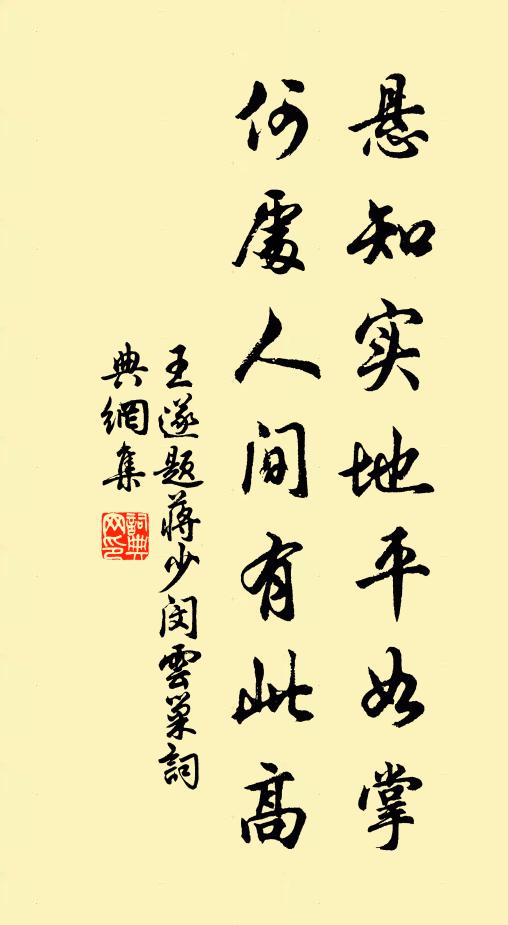 悬知实地平如掌
何處人间有此高
王遂题蒋少闵雲巢詞
典網集
詞典网印